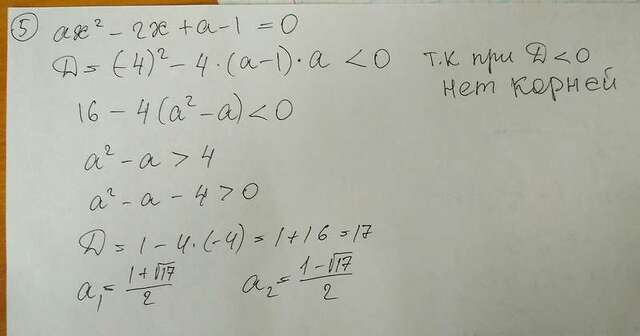 ⑤ ax² - 2x + a - 1 = 0
D = (-4)² - 4·(a-1)·a < 0 т.к при D < 0
нет корней
16 - 4(a² - a) < 0
a² - a > 4
a² - a - 4 > 0
D = 1 - 4·(-4) = 1 + 16 = 17
a₁ = (1+√17)/2 a₂ = (1-√17)/2